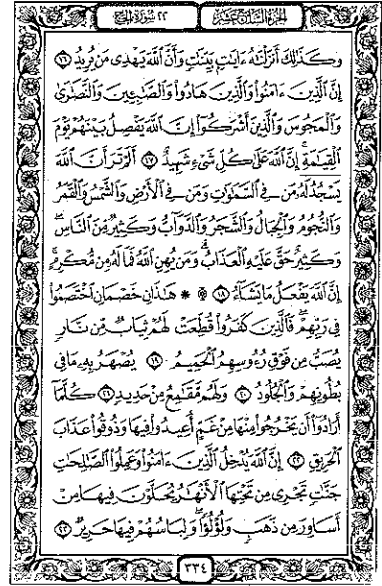 الجزء السابع عشر ٢٢ سورة الحج
وَكَذَٰلِكَ أَنزَلْنَٰهُ ءَايَٰتٍۭ بَيِّنَٰتٍ وَأَنَّ ٱللَّهَ يَهْدِى مَن يُرِيدُ ١٦
إِنَّ ٱلَّذِينَ ءَامَنُوا۟ وَٱلَّذِينَ هَادُوا۟ وَٱلصَّٰبِـِٔينَ وَٱلنَّصَٰرَىٰ
وَٱلْمَجُوسَ وَٱلَّذِينَ أَشْرَكُوٓا۟ إِنَّ ٱللَّهَ يَفْصِلُ بَيْنَهُمْ يَوْمَ
ٱلْقِيَٰمَةِ ۚ إِنَّ ٱللَّهَ عَلَىٰ كُلِّ شَىْءٍ شَهِيدٌ ١٧ أَلَمْ تَرَ أَنَّ ٱللَّهَ
يَسْجُدُ لَهُۥ مَن فِى ٱلسَّمَٰوَٰتِ وَمَن فِى ٱلْأَرْضِ وَٱلشَّمْسُ وَٱلْقَمَرُ
وَٱلنُّجُومُ وَٱلْجِبَالُ وَٱلشَّجَرُ وَٱلدَّوَآبُّ وَكَثِيرٌ مِّنَ ٱلنَّاسِ ۖ
وَكَثِيرٌ حَقَّ عَلَيْهِ ٱلْعَذَابُ ۗ وَمَن يُهِنِ ٱللَّهُ فَمَا لَهُۥ مِن مُّكْرِمٍ ۚ
إِنَّ ٱللَّهَ يَفْعَلُ مَا يَشَآءُ ۩ ١٨ ۞ هَٰذَانِ خَصْمَانِ ٱخْتَصَمُوا۟
فِى رَبِّهِمْ ۖ فَٱلَّذِينَ كَفَرُوا۟ قُطِّعَتْ لَهُمْ ثِيَابٌ مِّن نَّارٍ
يُصَبُّ مِن فَوْقِ رُءُوسِهِمُ ٱلْحَمِيمُ ١٩ يُصْهَرُ بِهِۦ مَا فِى
بُطُونِهِمْ وَٱلْجُلُودُ ٢٠ وَلَهُم مَّقَٰمِعُ مِنْ حَدِيدٍ ٢١ كُلَّمَآ
أَرَادُوٓا۟ أَن يَخْرُجُوا۟ مِنْهَا مِنْ غَمٍّ أُعِيدُوا۟ فِيهَا وَذُوقُوا۟ عَذَابَ
ٱلْحَرِيقِ ٢٢ إِنَّ ٱللَّهَ يُدْخِلُ ٱلَّذِينَ ءَامَنُوا۟ وَعَمِلُوا۟ ٱلصَّٰلِحَٰتِ
جَنَّٰتٍ تَجْرِى مِن تَحْتِهَا ٱلْأَنْهَٰرُ يُحَلَّوْنَ فِيهَا مِنْ
أَسَاوِرَ مِن ذَهَبٍ وَلُؤْلُؤًا ۖ وَلِبَاسُهُمْ فِيهَا حَرِيرٌ ٢٣
٣٣٤